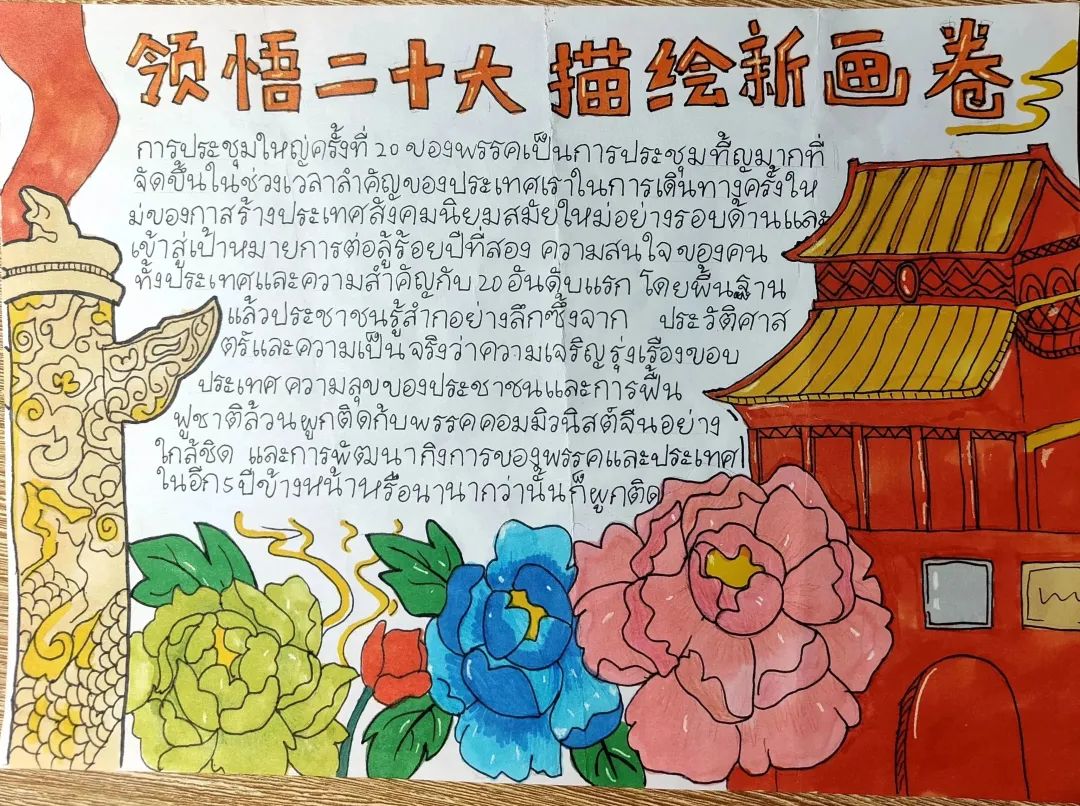 领悟二十大 描绘新画卷
การประชุมใหญ่ครั้งที่ 20 ของพรรคเป็นการประชุมที่ญมากที่
จัดขึ้นในช่วงเวลาสำคัญของประเทศเราในการเดินทางครั้งให
ม่ของกาสร้างประเทศสังคมนิยมสมัยใหม่อย่างรอบด้านและ
เข้าสู่เป้าหมายการต่อสู้ร้อยปีที่สอง ความสนใจของคน
ทั้งประเทศและความสำคัญกับ 20 อันดับแรก โดยพื้นฐาน
แล้วประชาชนรู้สำกอย่างลึกซึ้งจาก ประวัติศาส
ตร์และความเป็นจริงว่าความเจริญรุ่งเรืองขอบ
ประเทศ ความสุขของประชาชนและการฟื้น
ฟูชาติล้วนผูกติดกับพรรคคอมมิวนิสต์จีนอย่าง
ใกล้ชิด และการพัฒนากิงการของพรรคและประเทศ
ในอีก 5 ปีข้างหน้าหรือนานากว่านั้นก็ผูกติด